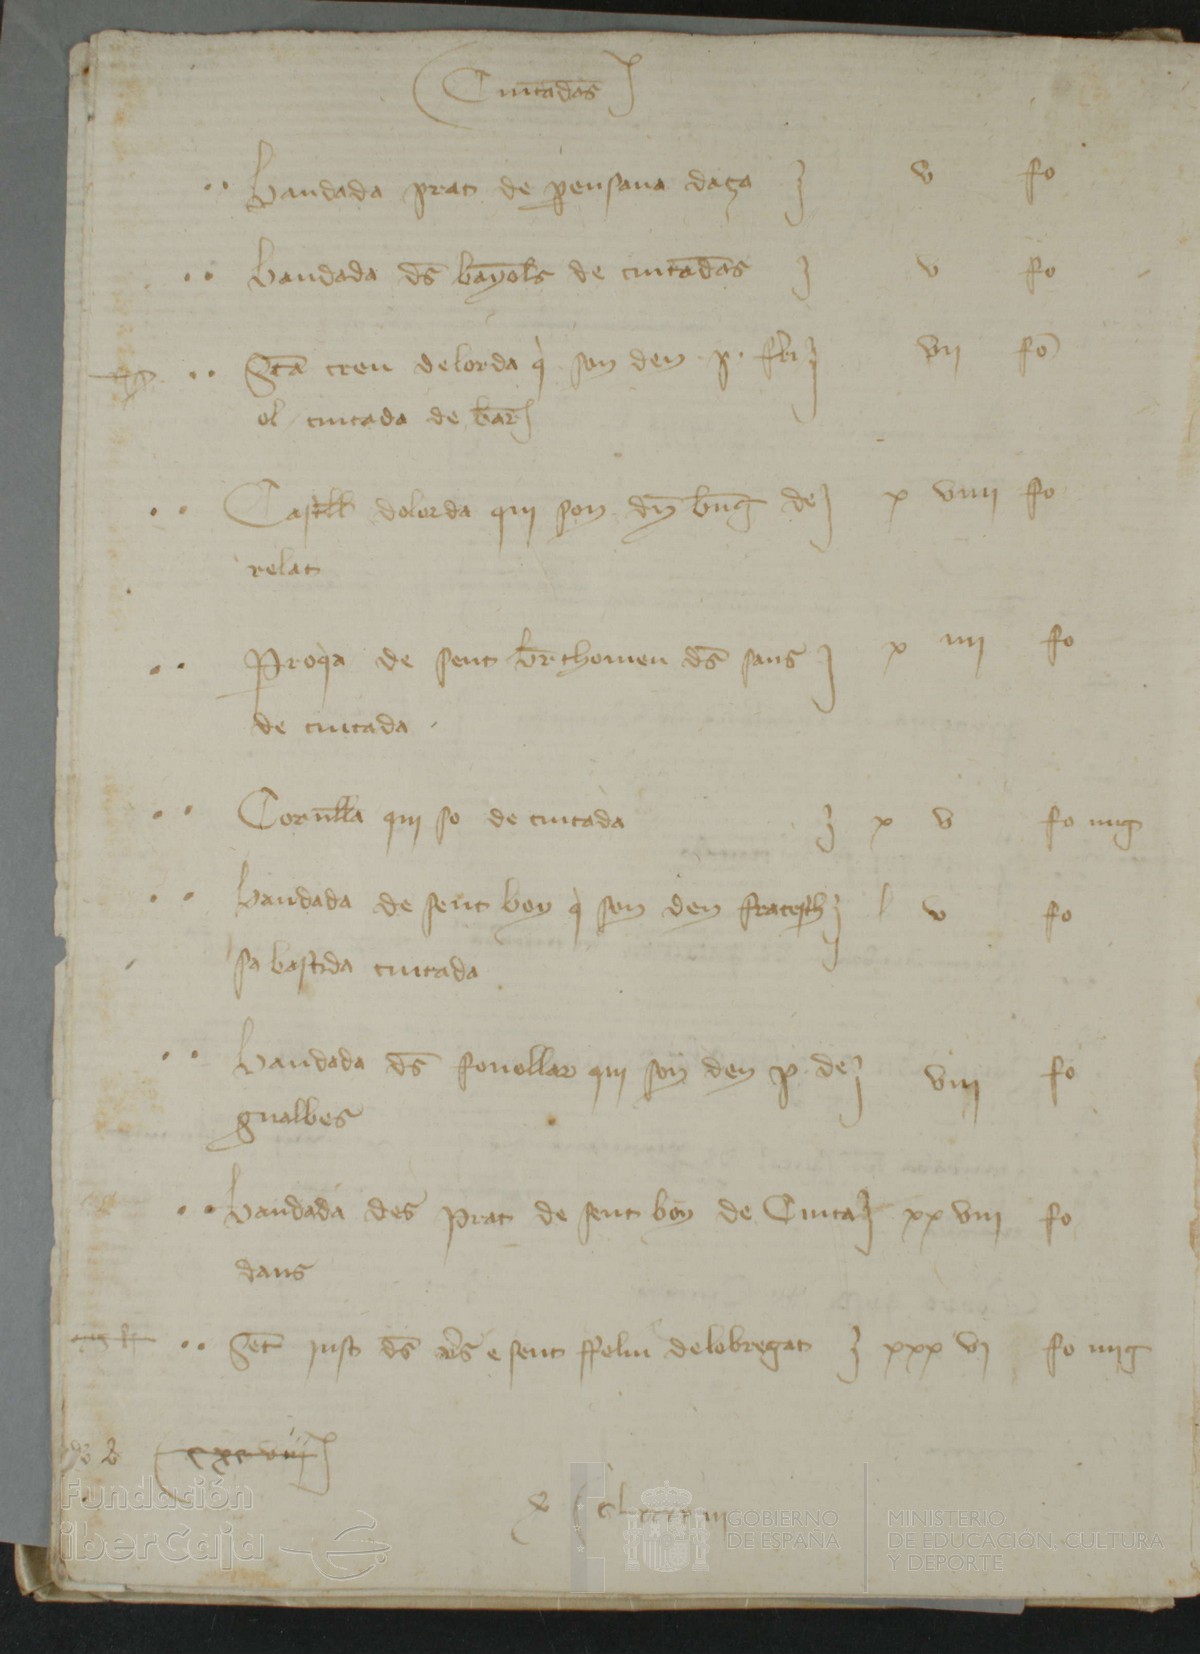 Ciutadas
Bandada prat de pensana daça v fo
Bandada ds bayols de ciutadas v fo
Sta creu delorda q son den p. fri vii fo
ol ciutada de bar
Castell dolorda qui son dn bng de x viiii fo
relat
Proqia de sent brthomeu ds sans x iiii fo
de ciutada
Cornlla qui so de ciutada x v fo mig
bandada de sent boy q son den l v fo
sa bastida ciutada
bandada ds fonollar qui son den p. de viii fo
gualbes
bandada des prat de sent boy de Ciuta xx viii fo
dans
Set just ds e sent ffeliu delobregat xxx vi fo mig
Fundación
iberCaja
GOBIERNO
DE ESPAÑA
MINISTERIO
DE EDUCACIÓN, CULTURA
Y DEPORTE